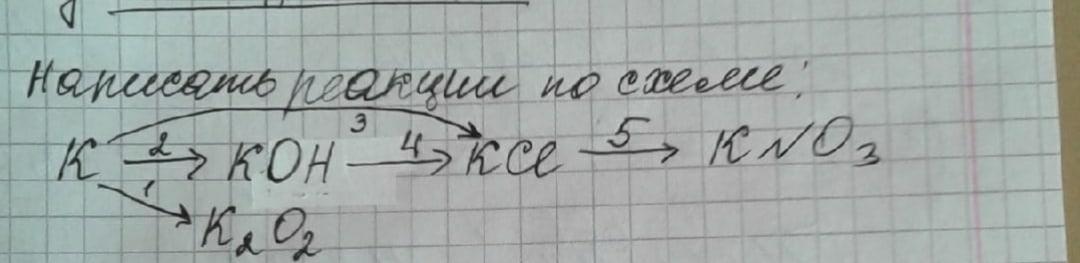 Написать реакции по схеме:
3
K 2→ KOH 4→ KCl 5→ KNO₃
1
K₂O₂